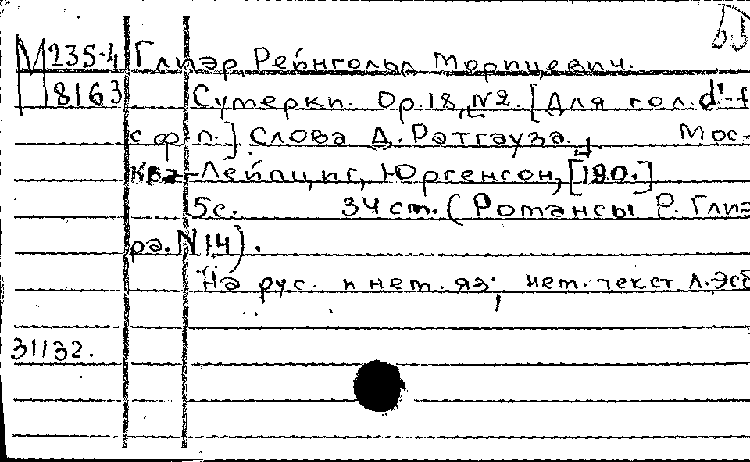 М 235-4 Глиэр, Рейнгольд Морицевич.
8163 Сумерки. Ор.18, №2. [Для гол. d'-f
с ф-п.] Слова Д. Ратгауза.
Мос-
ква-Лейпциг, Юргенсон, [190.]
5с. 34 см. (Романсы Р. Глиэ
ра. N 14).
На рус. и нет. яз.; нет. текст Л. Эсб
31132.